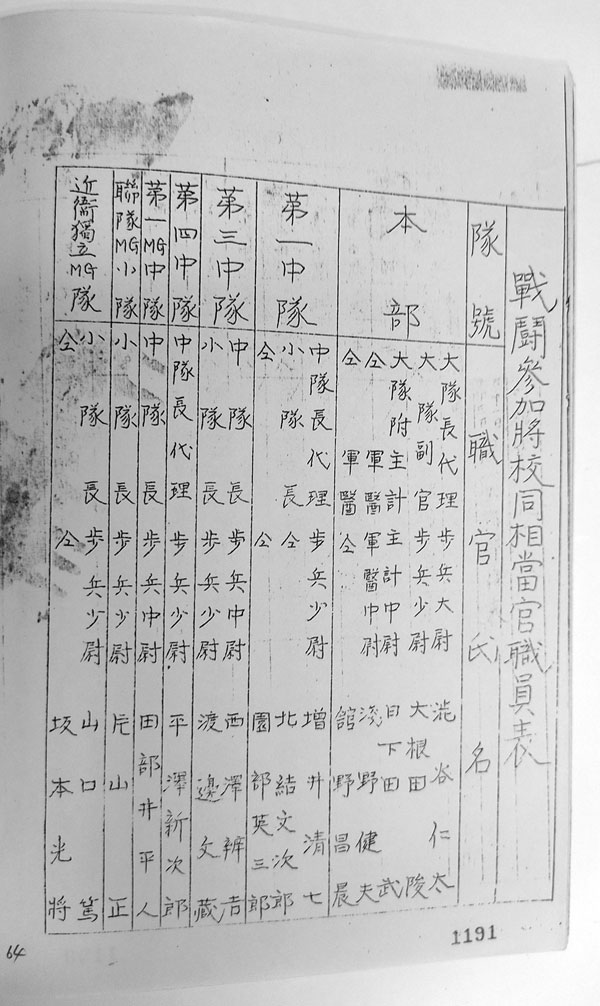 戰鬪參加將校同相當官職員表
隊號 職 官 氏名
本部 大隊長代理 步兵大尉 澁谷仁太
大隊副官 步兵少尉 大根田陵
大隊附主計 主計中尉 日下田武
仝 軍醫 軍醫中尉 淺野健夫
仝 軍醫 仝 館野昌晨
第一中隊 中隊長代理 步兵少尉 増井清七
小隊長 仝 北結文次郎
仝 仝 園部英三郎
第三中隊 中隊長 步兵中尉 西澤辨吉
小隊長 步兵少尉 渡邊文藏
第四中隊 中隊長代理 步兵少尉 平澤新次郎
第一MG中隊 中隊長 步兵中尉 田部井平人
聯隊MG小隊 小隊長 步兵少尉 片山正
近衞獨立MG隊 小隊長 步兵少尉 山口篤
仝 仝 坂本光將
1191
64